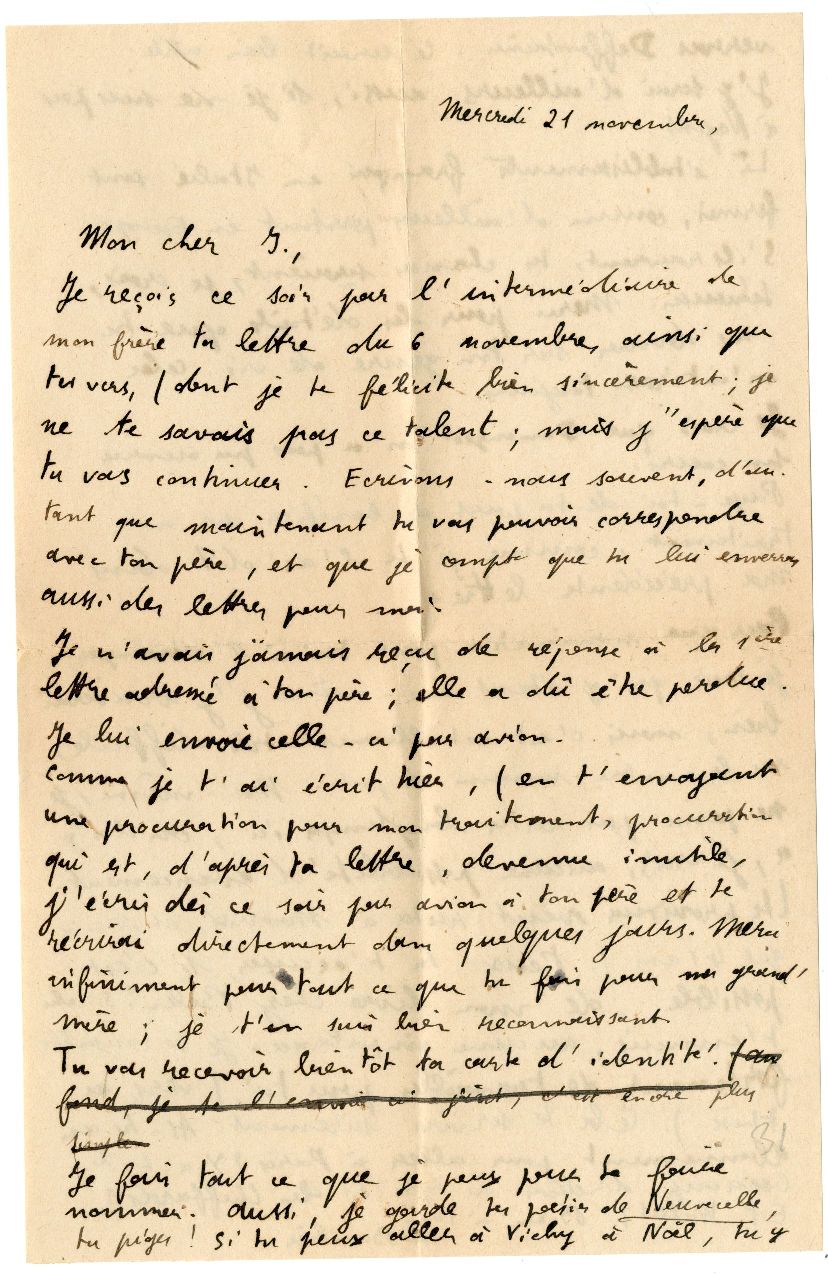 Mercredi 21 novembre,
Mon cher J.,
Je reçois ce soir par l'intermédiaire de
mon frère ta lettre du 6 novembre, ainsi que
tes vers, (dont je te félicite bien sincèrement ; je
ne te savais pas ce talent ; mais j'espère que
tu vas continuer. Ecrivons-nous souvent, d'au-
tant que maintenant tu vas pouvoir correspondre
avec ton père, et que je compte que tu lui enverras
aussi des lettres pour moi.
Je n'avais jamais reçu de réponse à la 1ère
lettre adressée à ton père ; elle a dû être perdue.
Je lui envoie celle-ci par avion.
Comme je t'ai écrit hier, (en t'envoyant
une procuration pour mon traitement, procuration
qui est, d'après ta lettre, devenue inutile,
j'écris dès ce soir par avion à ton père et te
récrirai directement dans quelques jours. Merci
infiniment pour tout ce que tu fais pour ma grand'
mère ; je t'en suis bien reconnaissant.
Tu vas recevoir bientôt ta carte d'identité. (au
fond, je te l'envoie ci-joint, c'est encore plus
simple
31
Je fais tout ce que je peux pour te faire
nommer. Aussi, je garde tes poésies de Neuvecelle,
tu piges ! Si tu peux aller à Vichy à Noël, tu y